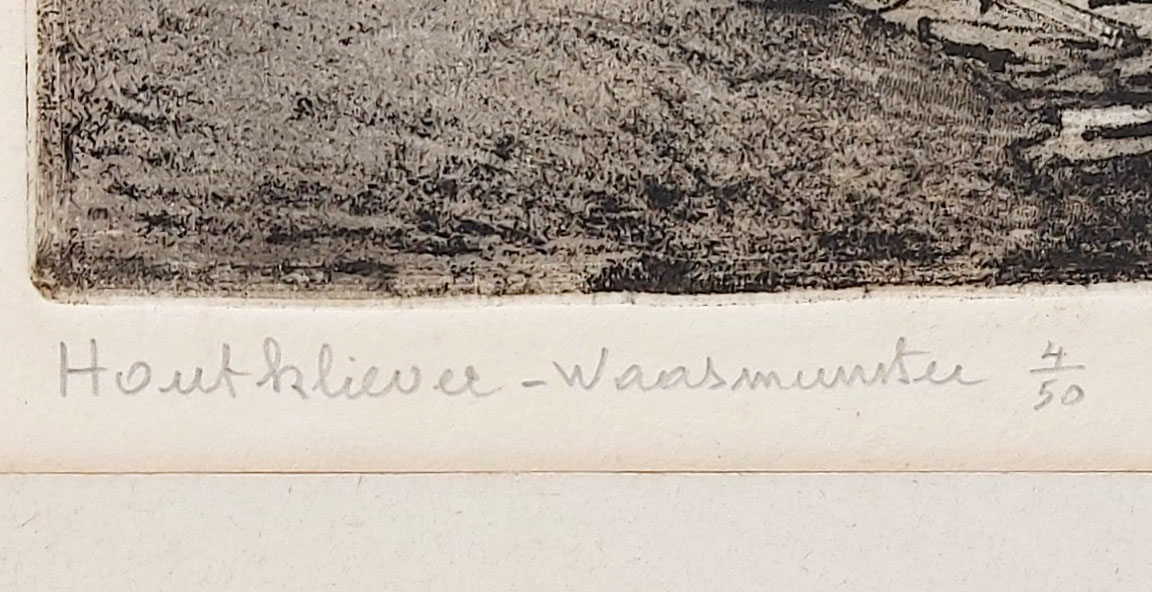 Houtkliever - Waasmunster 4/50